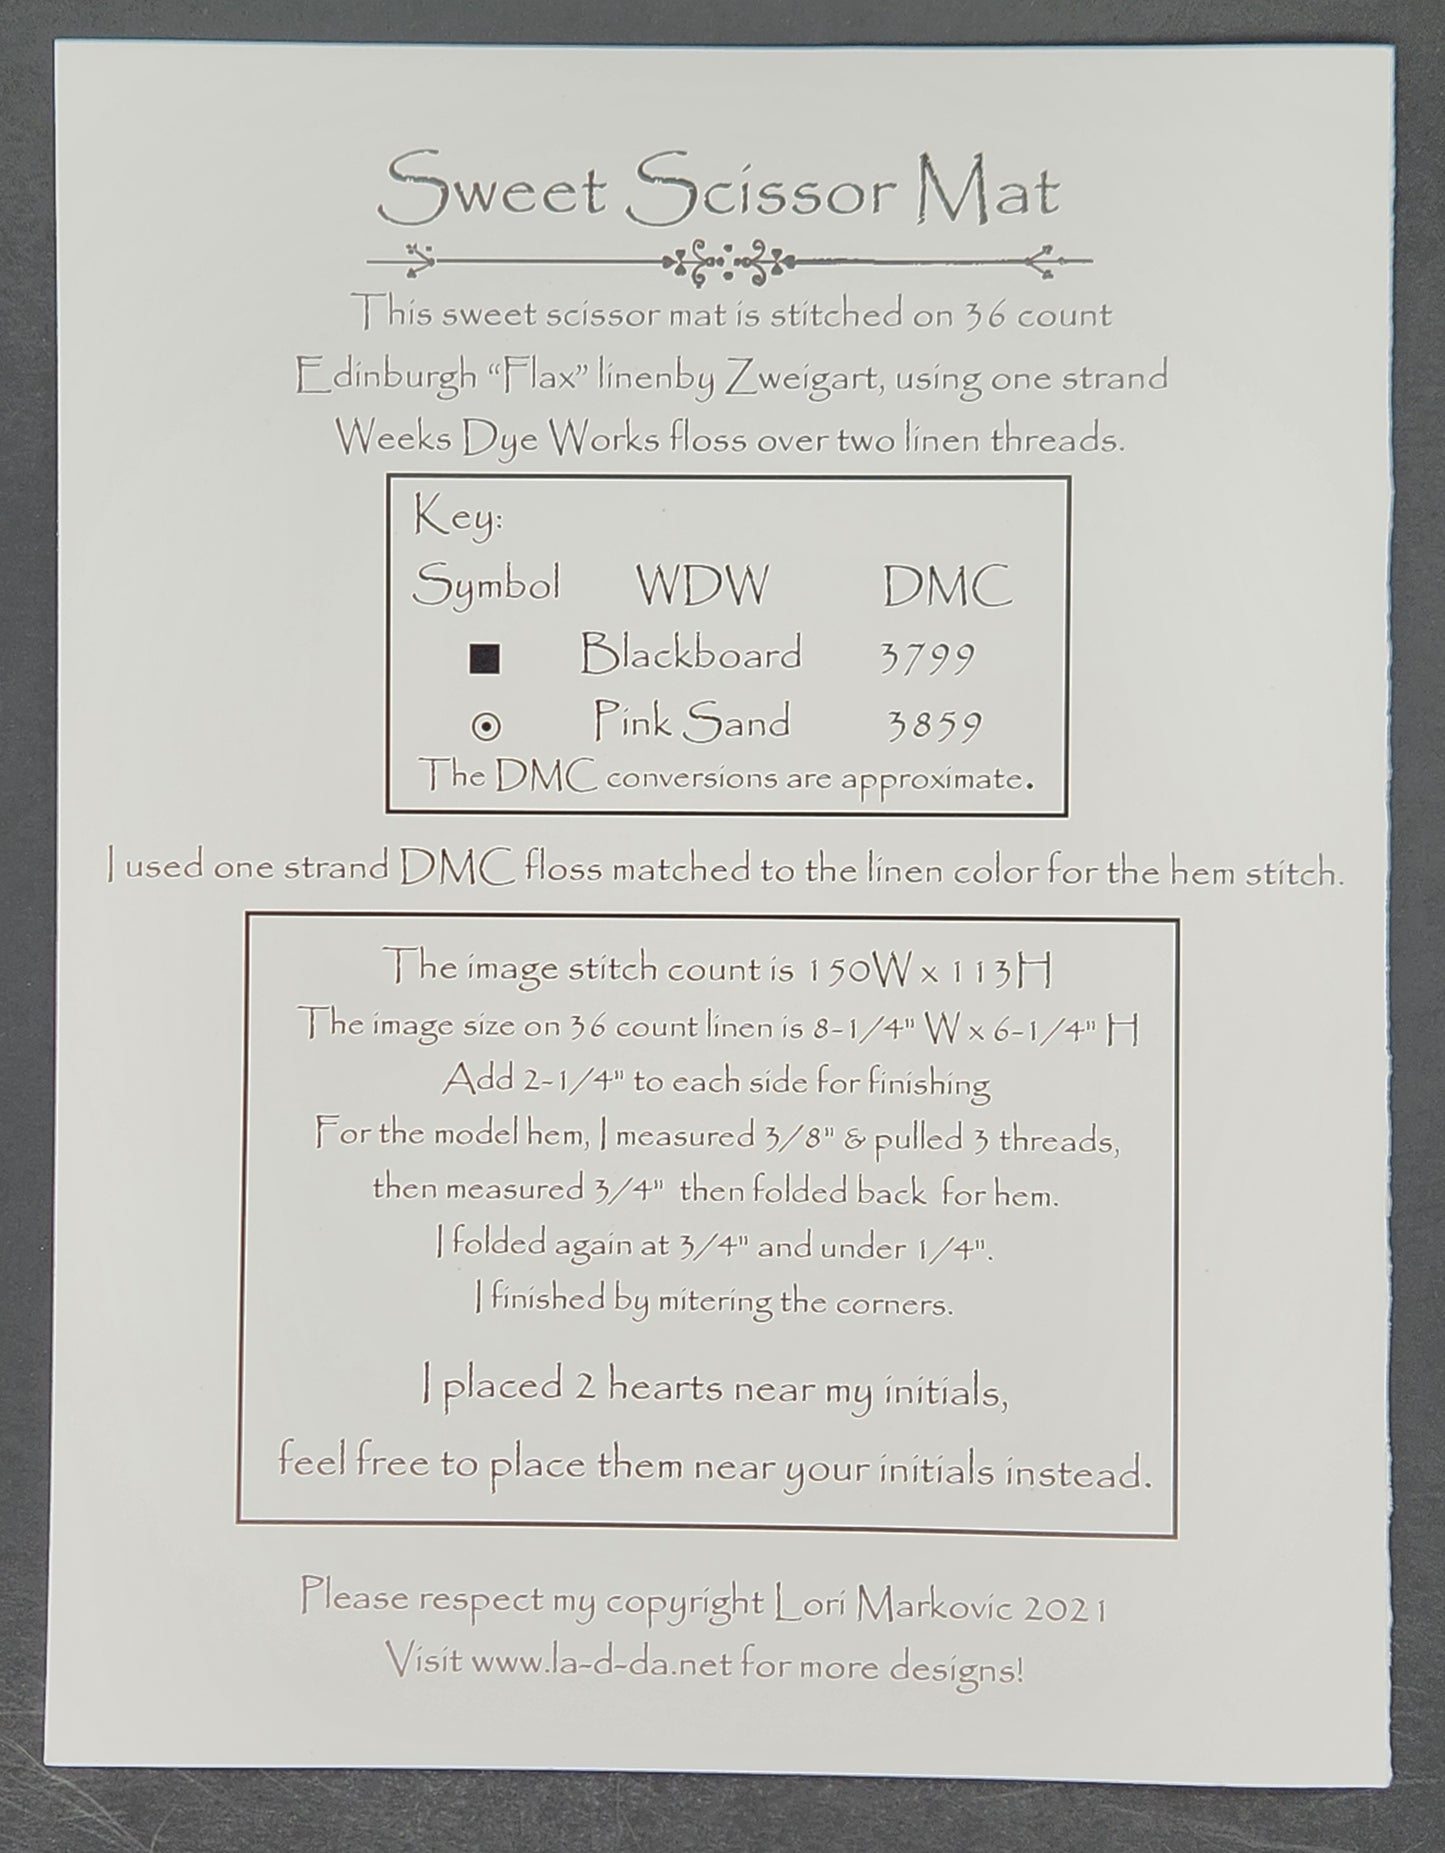 Sweet Scissor Mat
This sweet scissor mat is stitched on 36 count
Edinburgh “Flax” linenby Zweigart, using one strand
Weeks Dye Works floss over two linen threads.
Key:
Symbol WDW DMC
■ Blackboard 3799
⊙ Pink Sand 3859
The DMC conversions are approximate.
I used one strand DMC floss matched to the linen color for the hem stitch.
The image stitch count is 150W x 113H
The image size on 36 count linen is 8-1/4" W x 6-1/4" H
Add 2-1/4" to each side for finishing
For the model hem, I measured 3/8" & pulled 3 threads,
then measured 3/4" then folded back for hem.
I folded again at 3/4" and under 1/4".
I finished by mitering the corners.
I placed 2 hearts near my initials,
feel free to place them near your initials instead.
Please respect my copyright Lori Markovic 2021
Visit www.la-d-da.net for more designs!